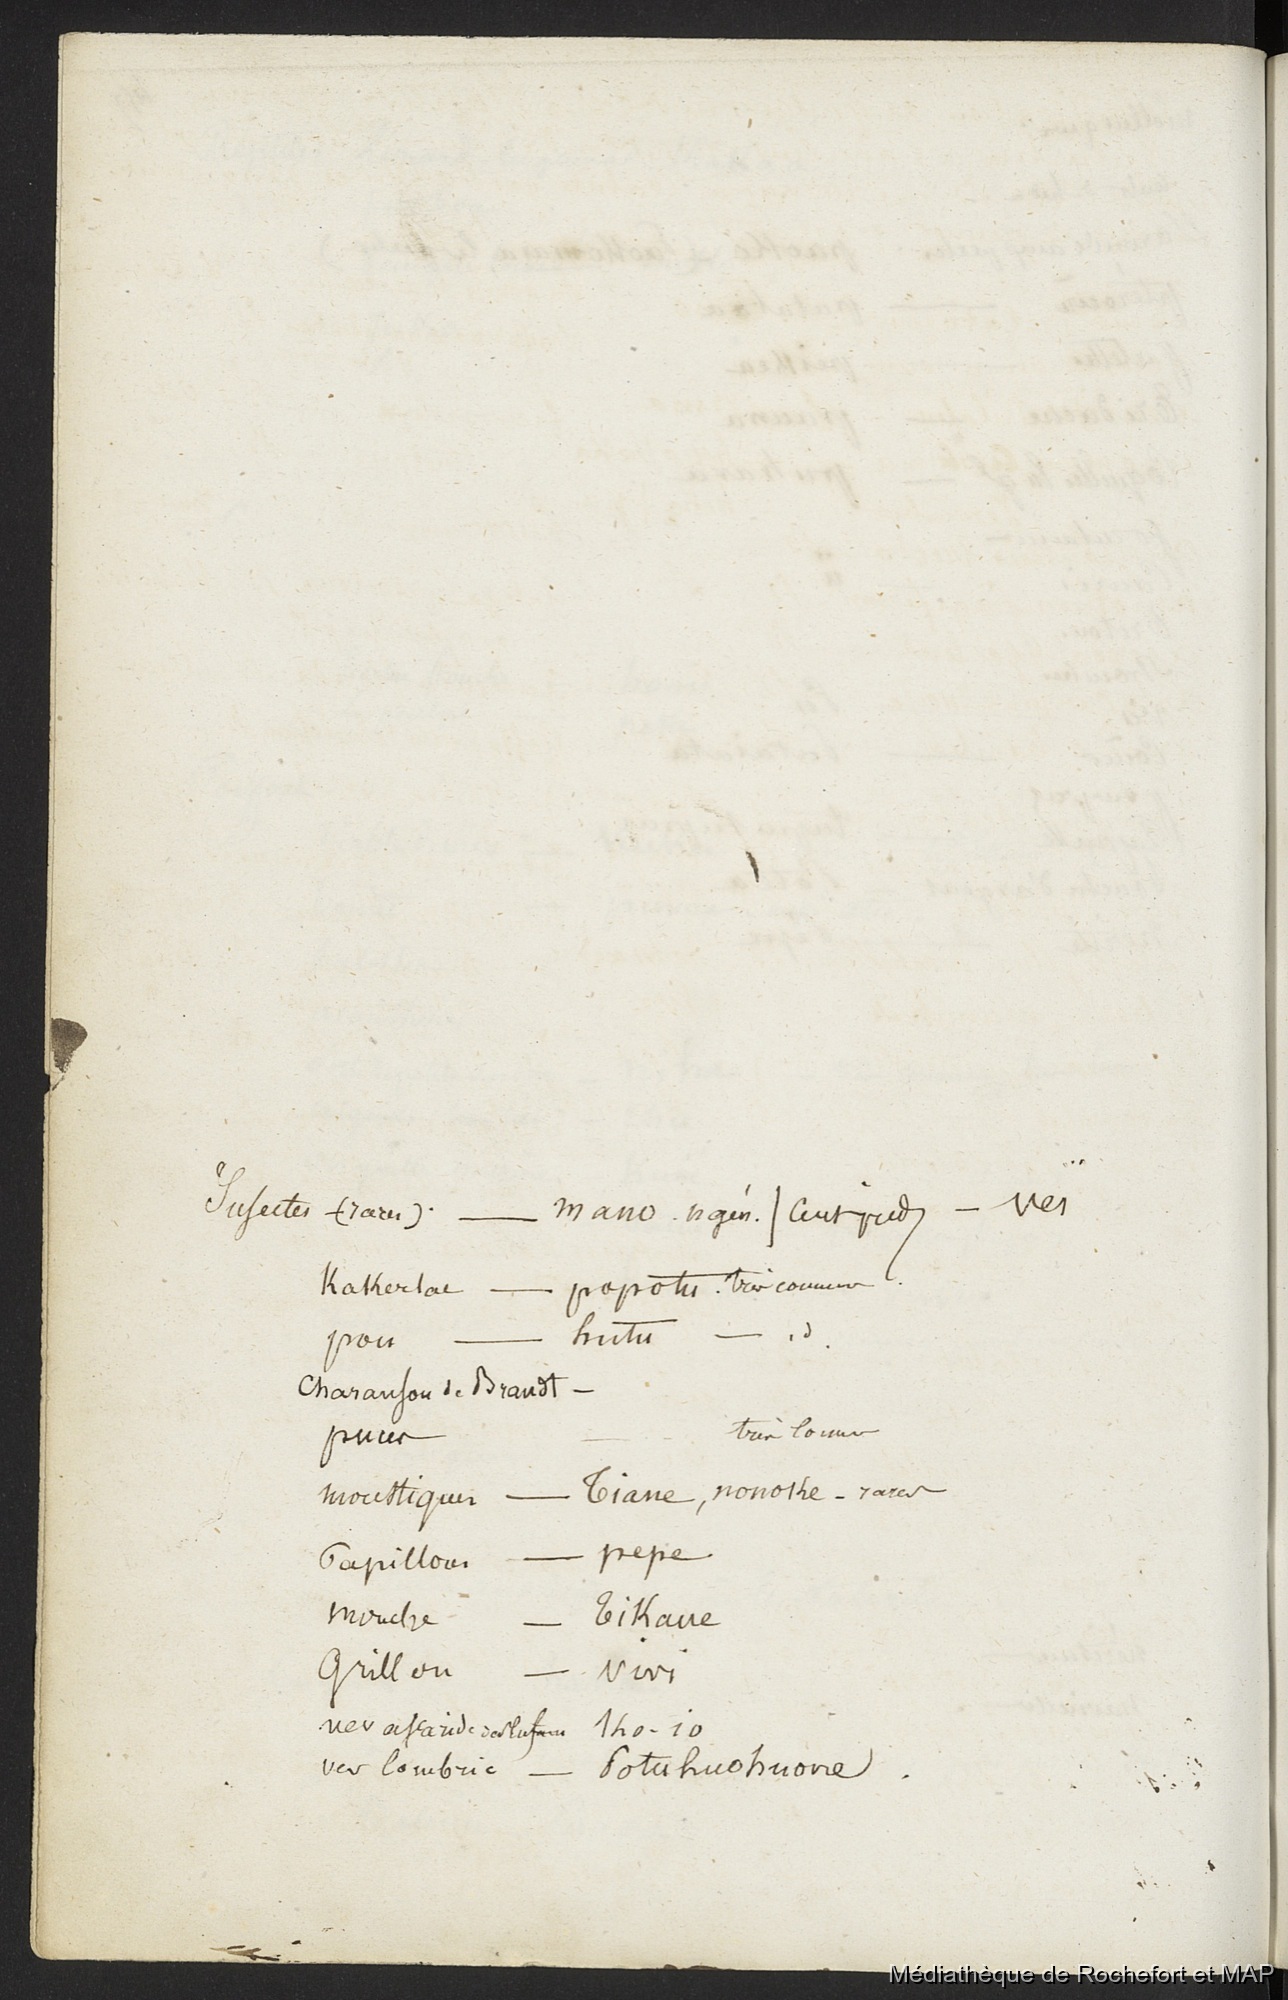 Insectes (rares). — mano. ngén. | Cent pieds — Vei
Kakerlac — popotu. très commun.
pou — hutu — id.
Charanson de Brandt —
puces — très comm
moustiques — Tiane, nonoke - rares
Papillons — pepe.
mouche — tikaue
Grillon — vivi
ver ascaride des Enfans tho-io
ver lombric — Potuhuohuove.
Médiathèque de Rochefort et MAP